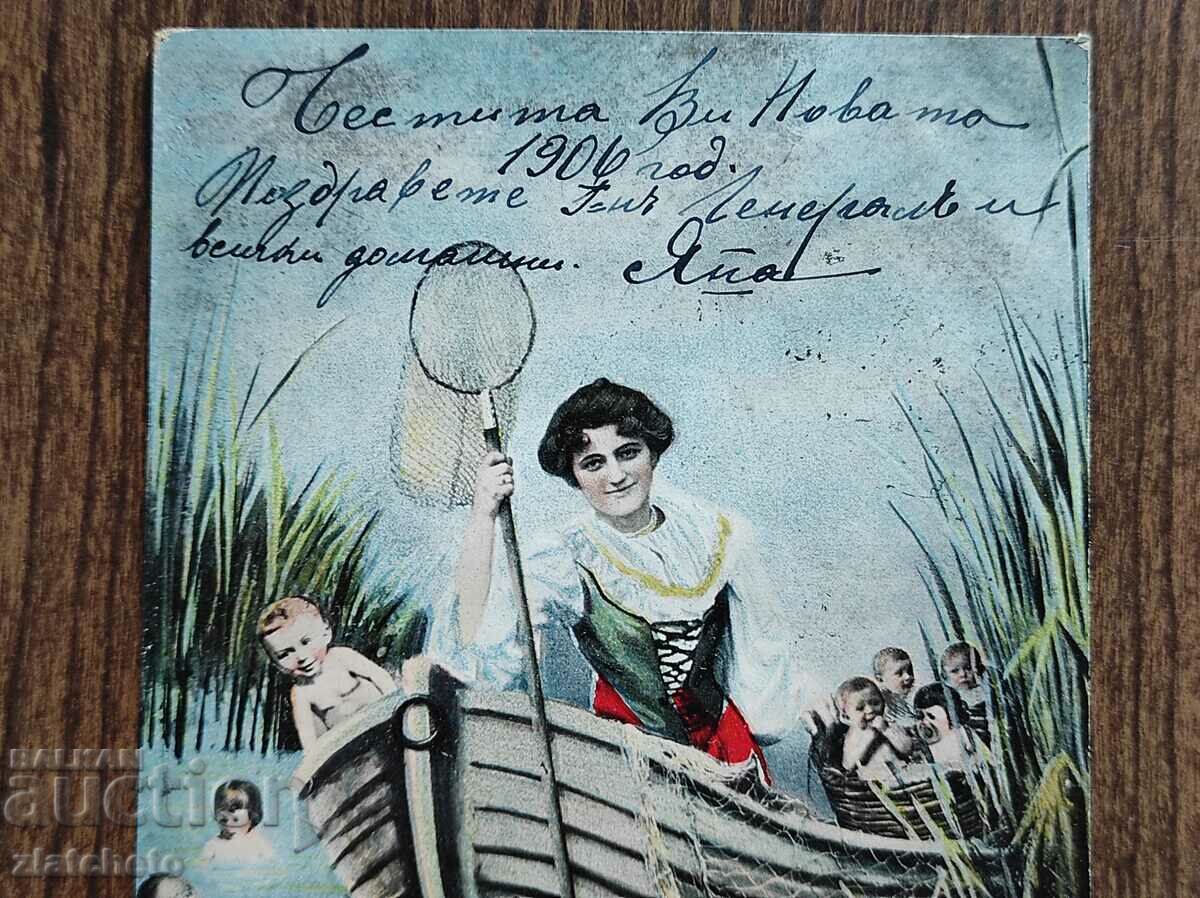 Честита Ви Новата
1906 год.
Поздравете Г-нъ Генералъ и
всички домашни. Япа
BALKAN
auction
zlatchoto